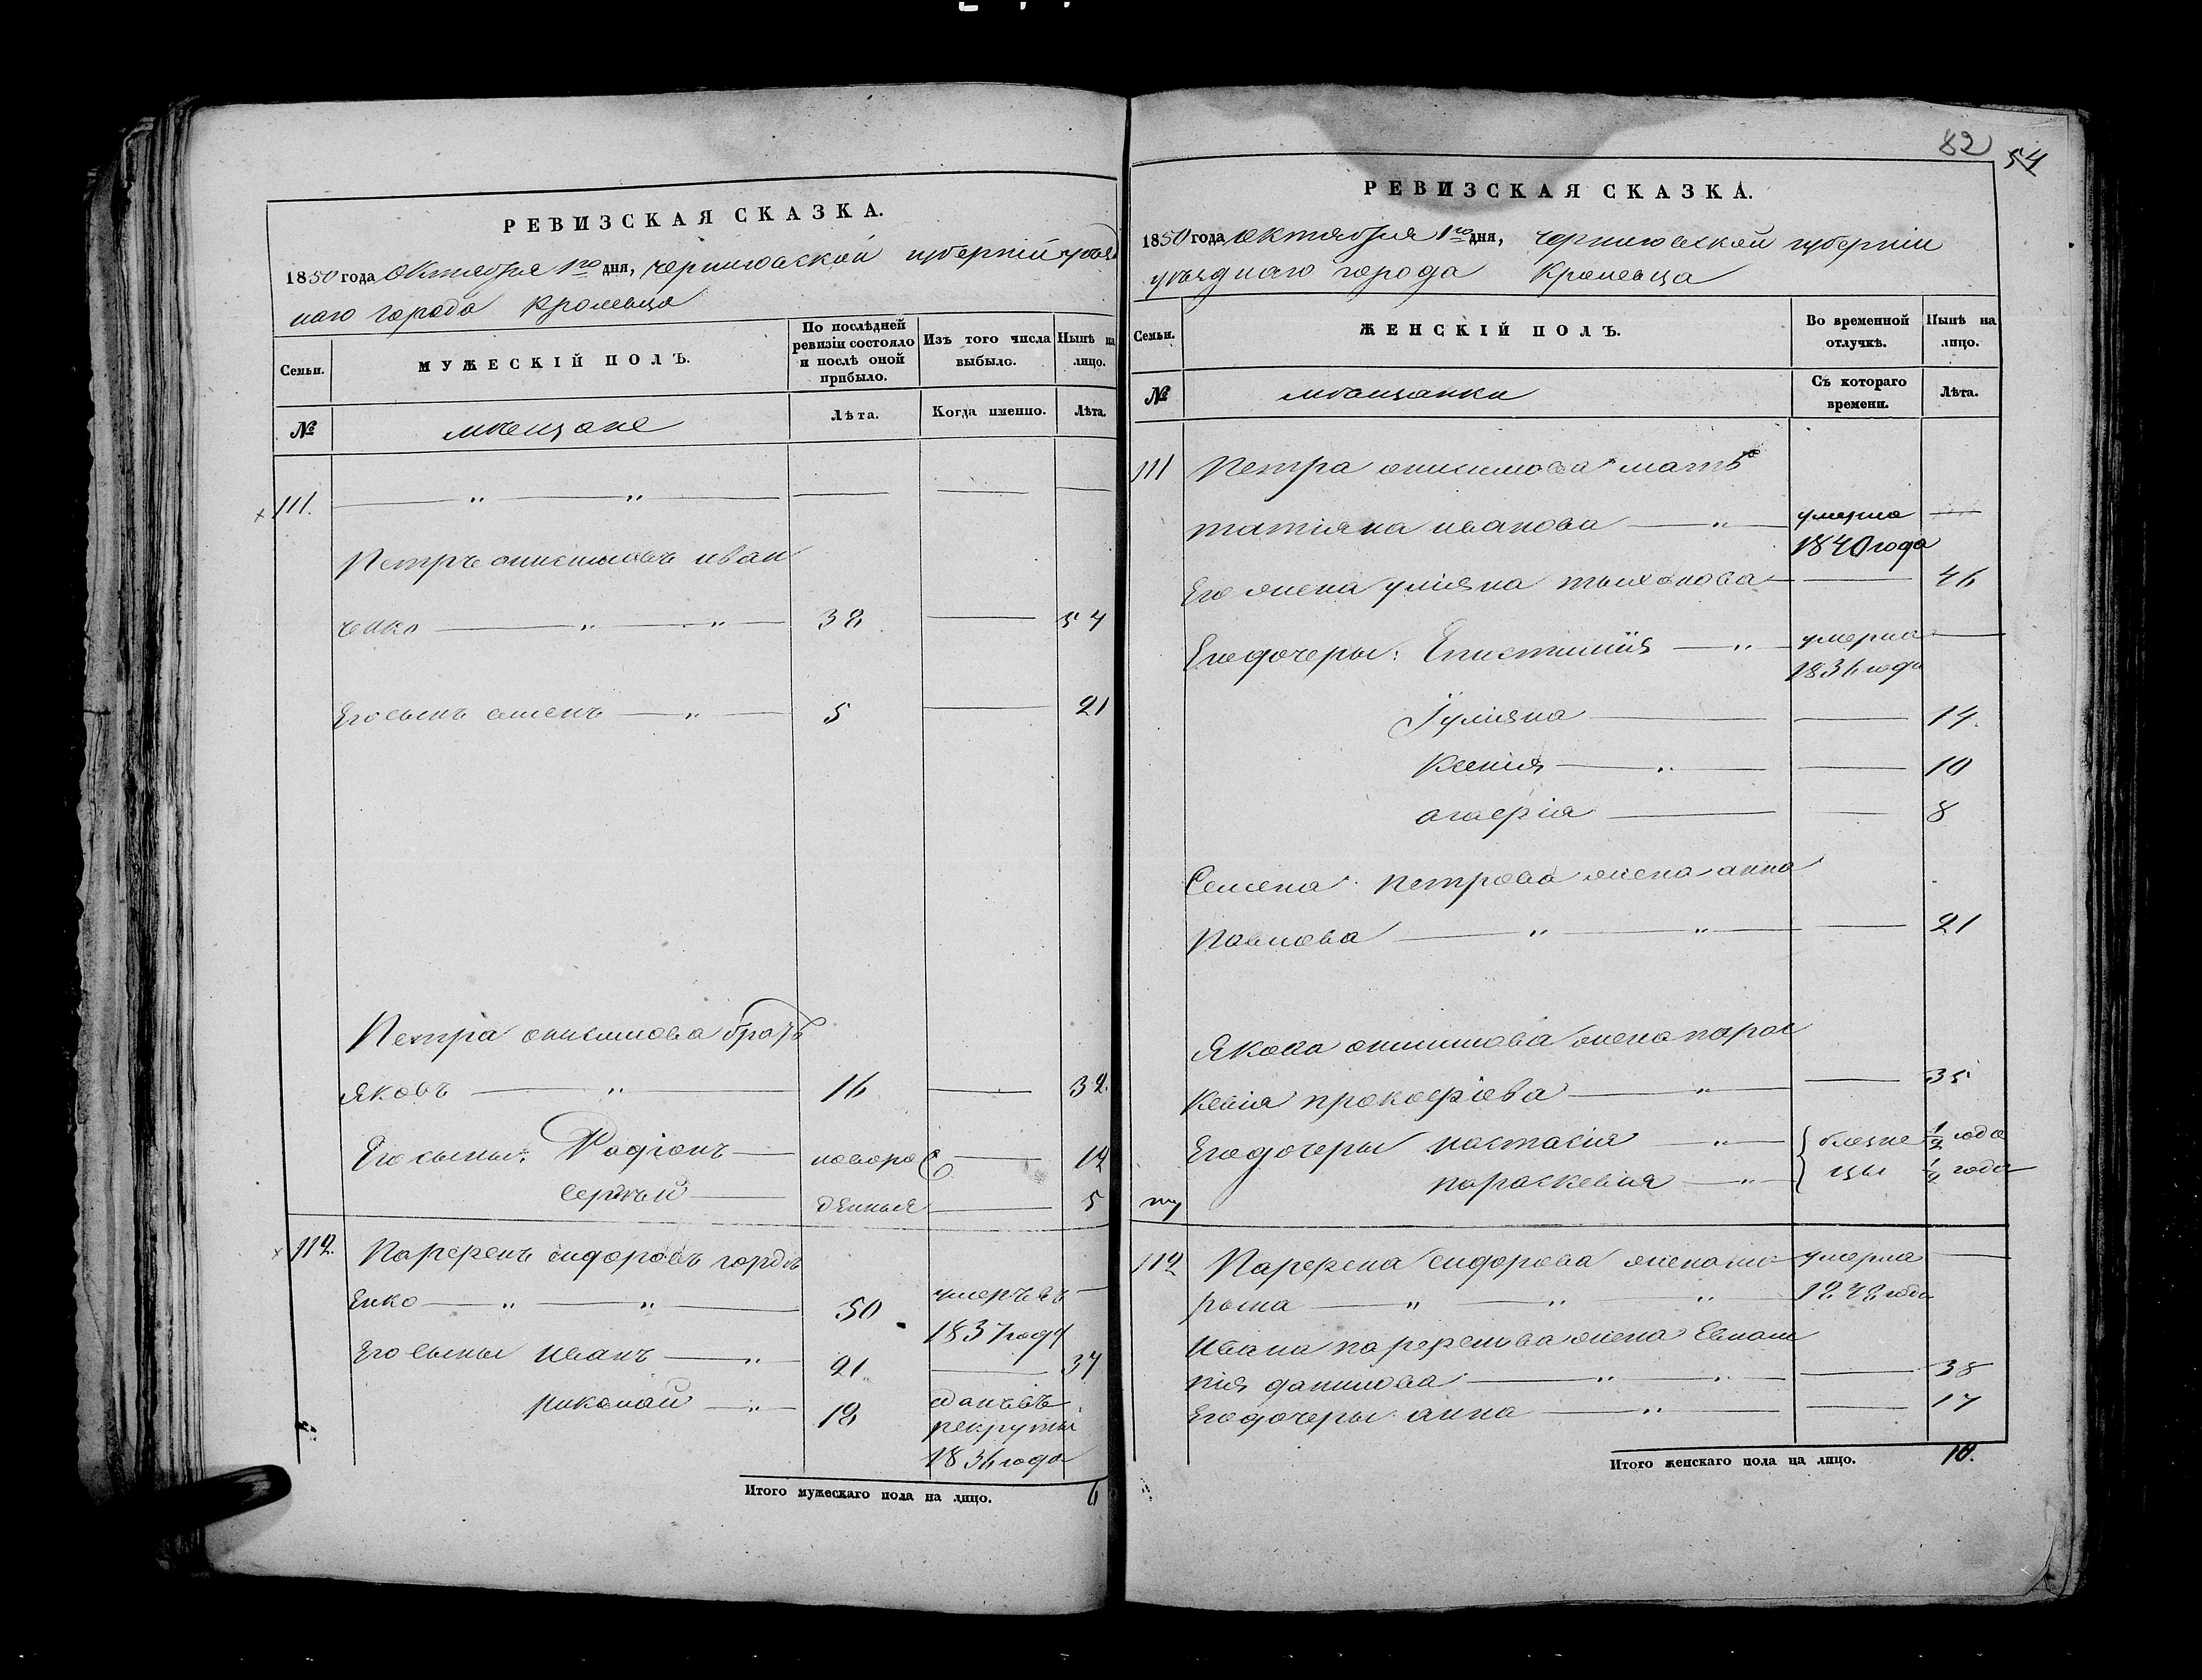 РЕВИЗСКАЯ СКАЗКА.
1850 года Октября 1го дня, черниговской губернии уезд
наго города Кролевца
Семьи.
МУЖЕСКІЙ ПОЛЪ.
По послѣдней ревизіи состояло и послѣ оной прибыло.
Изъ того числа выбыло.
Нынѣ на лицо.
№
мѣщане
Лѣта.
Когда именно.
Лѣта.
111.
Петръ онисимовъ иван
енко 38 54
Его сынъ семенъ 5 21
Петра онисимова братъ
яковъ 16 32
Его сыны: Родіонъ новоро 12
сергѣй денныя 5
112. Парфенъ сидоровъ горде
енко 50 умеръ въ
1837 году
Его сыны иванъ 21 37
николай 18 сданъ въ
рекруты
1836 года
Итого мужескаго пола на лицо. 6
82
54
РЕВИЗСКАЯ СКАЗКА.
1850 года октября 1го дня, черниговской губерніи
уѣзднаго города Кролевца
Семьи.
ЖЕНСКІЙ ПОЛЪ.
Во временной отлучкѣ.
Нынѣ на лицо.
№
мѣщанки
Съ котораго времени.
Лѣта.
111 Петра онисимова мать
татіяна иванова умерла
1840 года
Его жена уліяна тихонова 46
Его дочеры: Епистиміія умерла
1836 года
Іуліяна 14
Ксенія 10
агафія 8
Семена петрова жена анна
Павлова 21
Якова онисимова жена парас
кевія прокофіева 35
Его дочеры настасія близне 1/2 года
параскевия цы 1/2 года
112 Парфена сидорова жена ма умерла
рына 1848 года
Ивана парфенова жена Евлам
пія данилова 38
Его дочеры анна 17
Итого женскаго пола на лицо. 10.